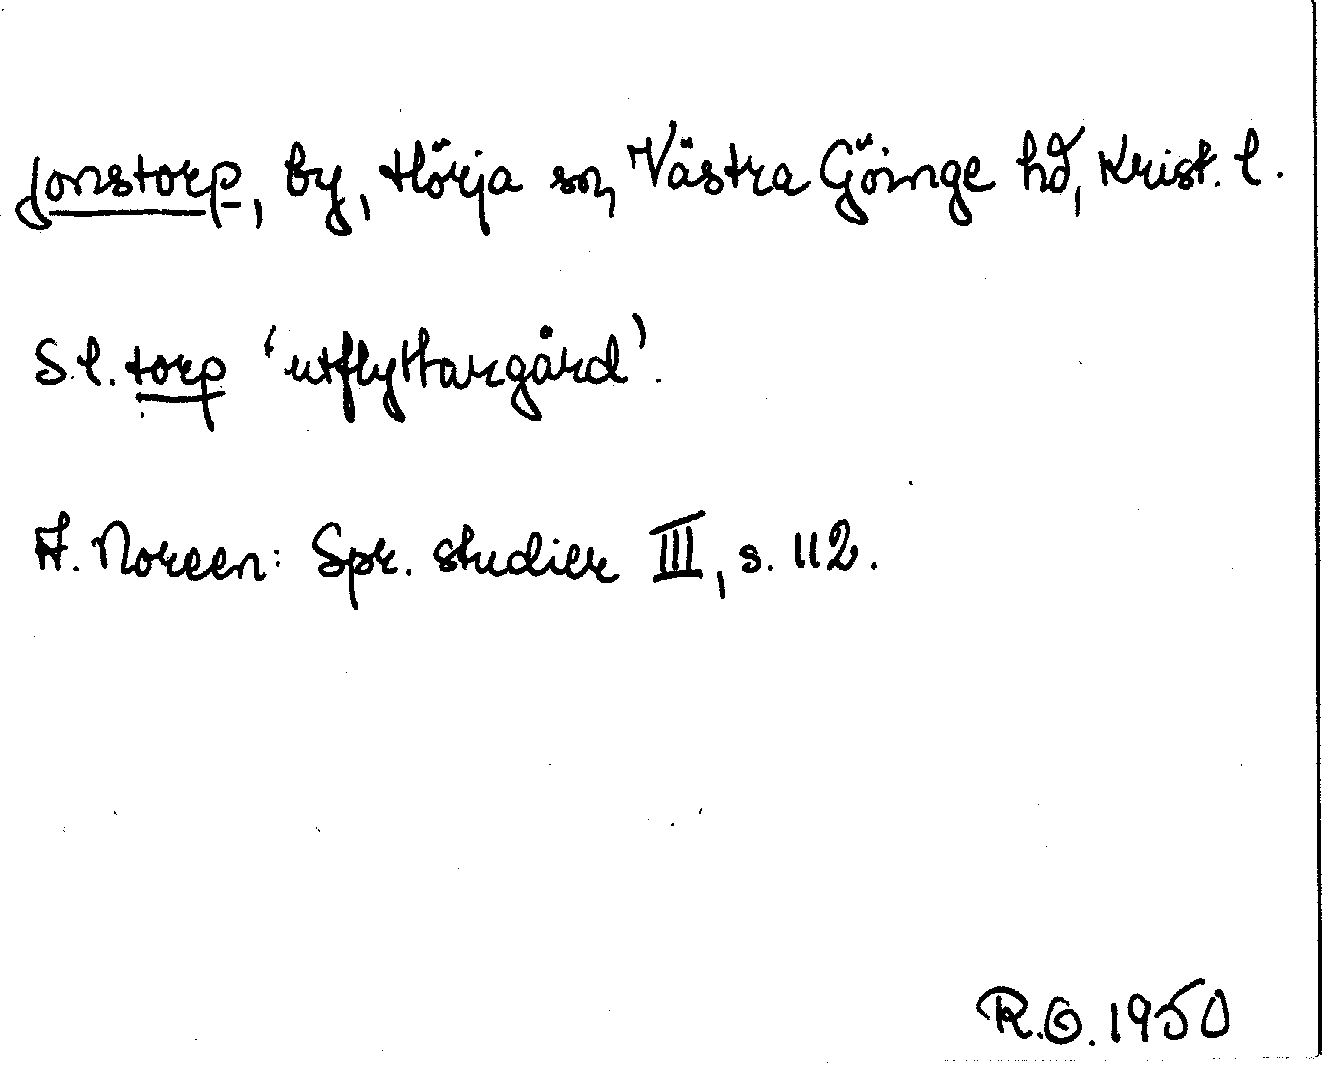 Jonstorp, by, Hörja sn, Västra Göinge hd, Krist. l.
S.l. torp 'utflyttargård'.
A. Noreen: Spr. studier III, s. 112.
R.O. 1950